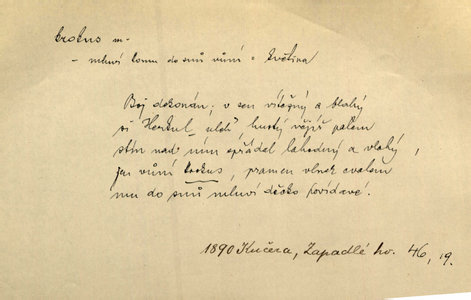 krokus m.
- mluví komu do snů vůní : květina
Boj dokonán; v sen vítězný a blahý
si Herkul uleh', hustý vějíř palem
stín nad ním spřádal lahodný a vlahý,
jen vůní krokus, pramen vlnek cvalem
mu do snů mluví děcko povídavé.
1890 Kučera, Zapadlé hv. 46, 19.